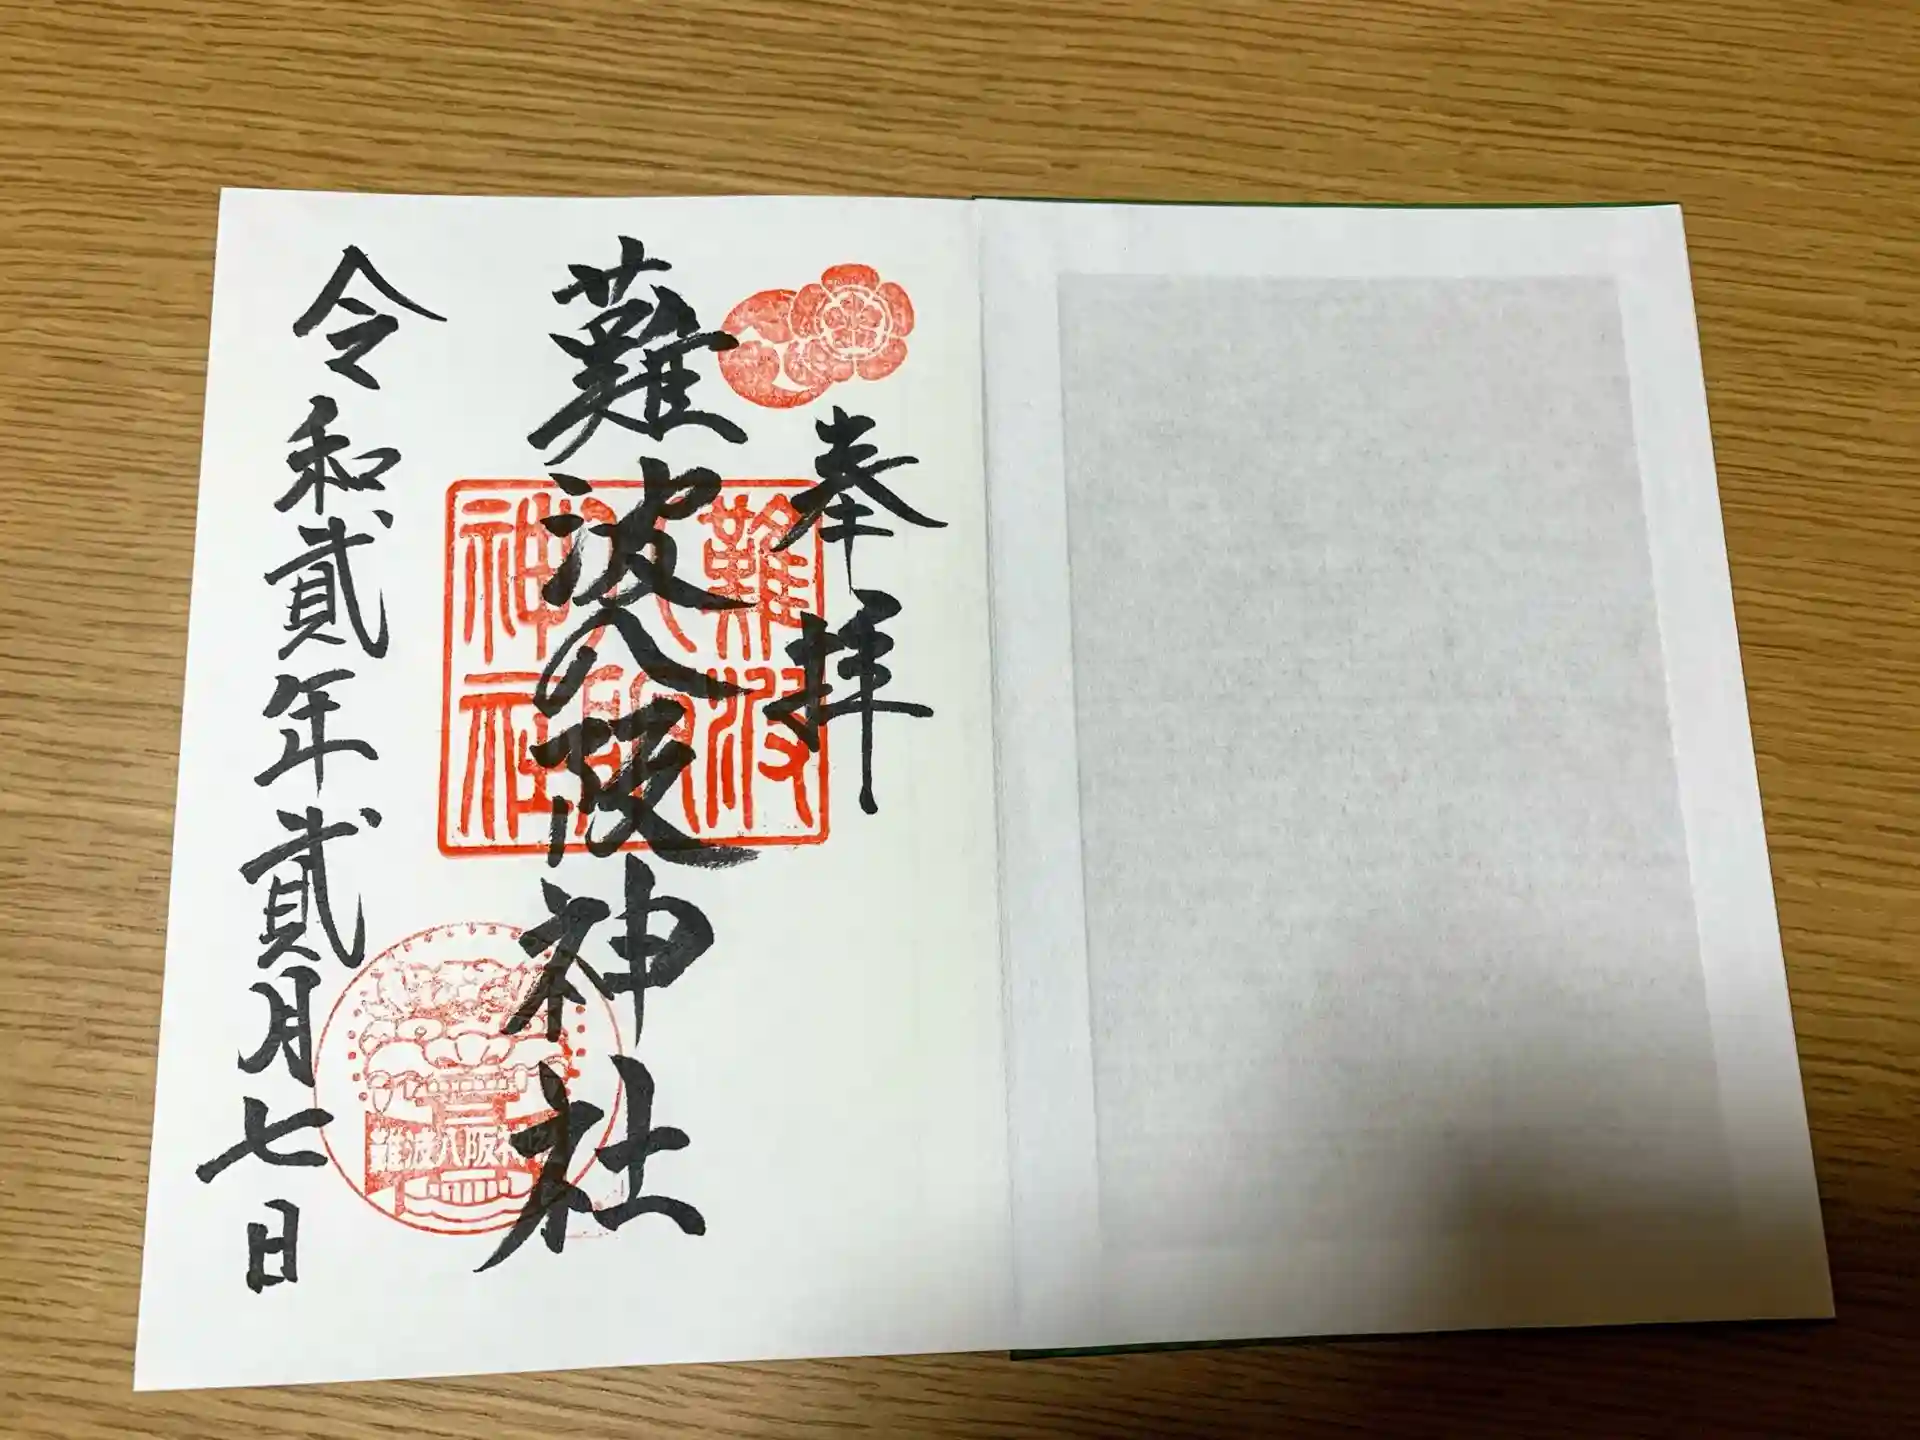 奉拝
難波八阪神社
令和貳年貳月七日
難波
八阪
神社
難波八阪神